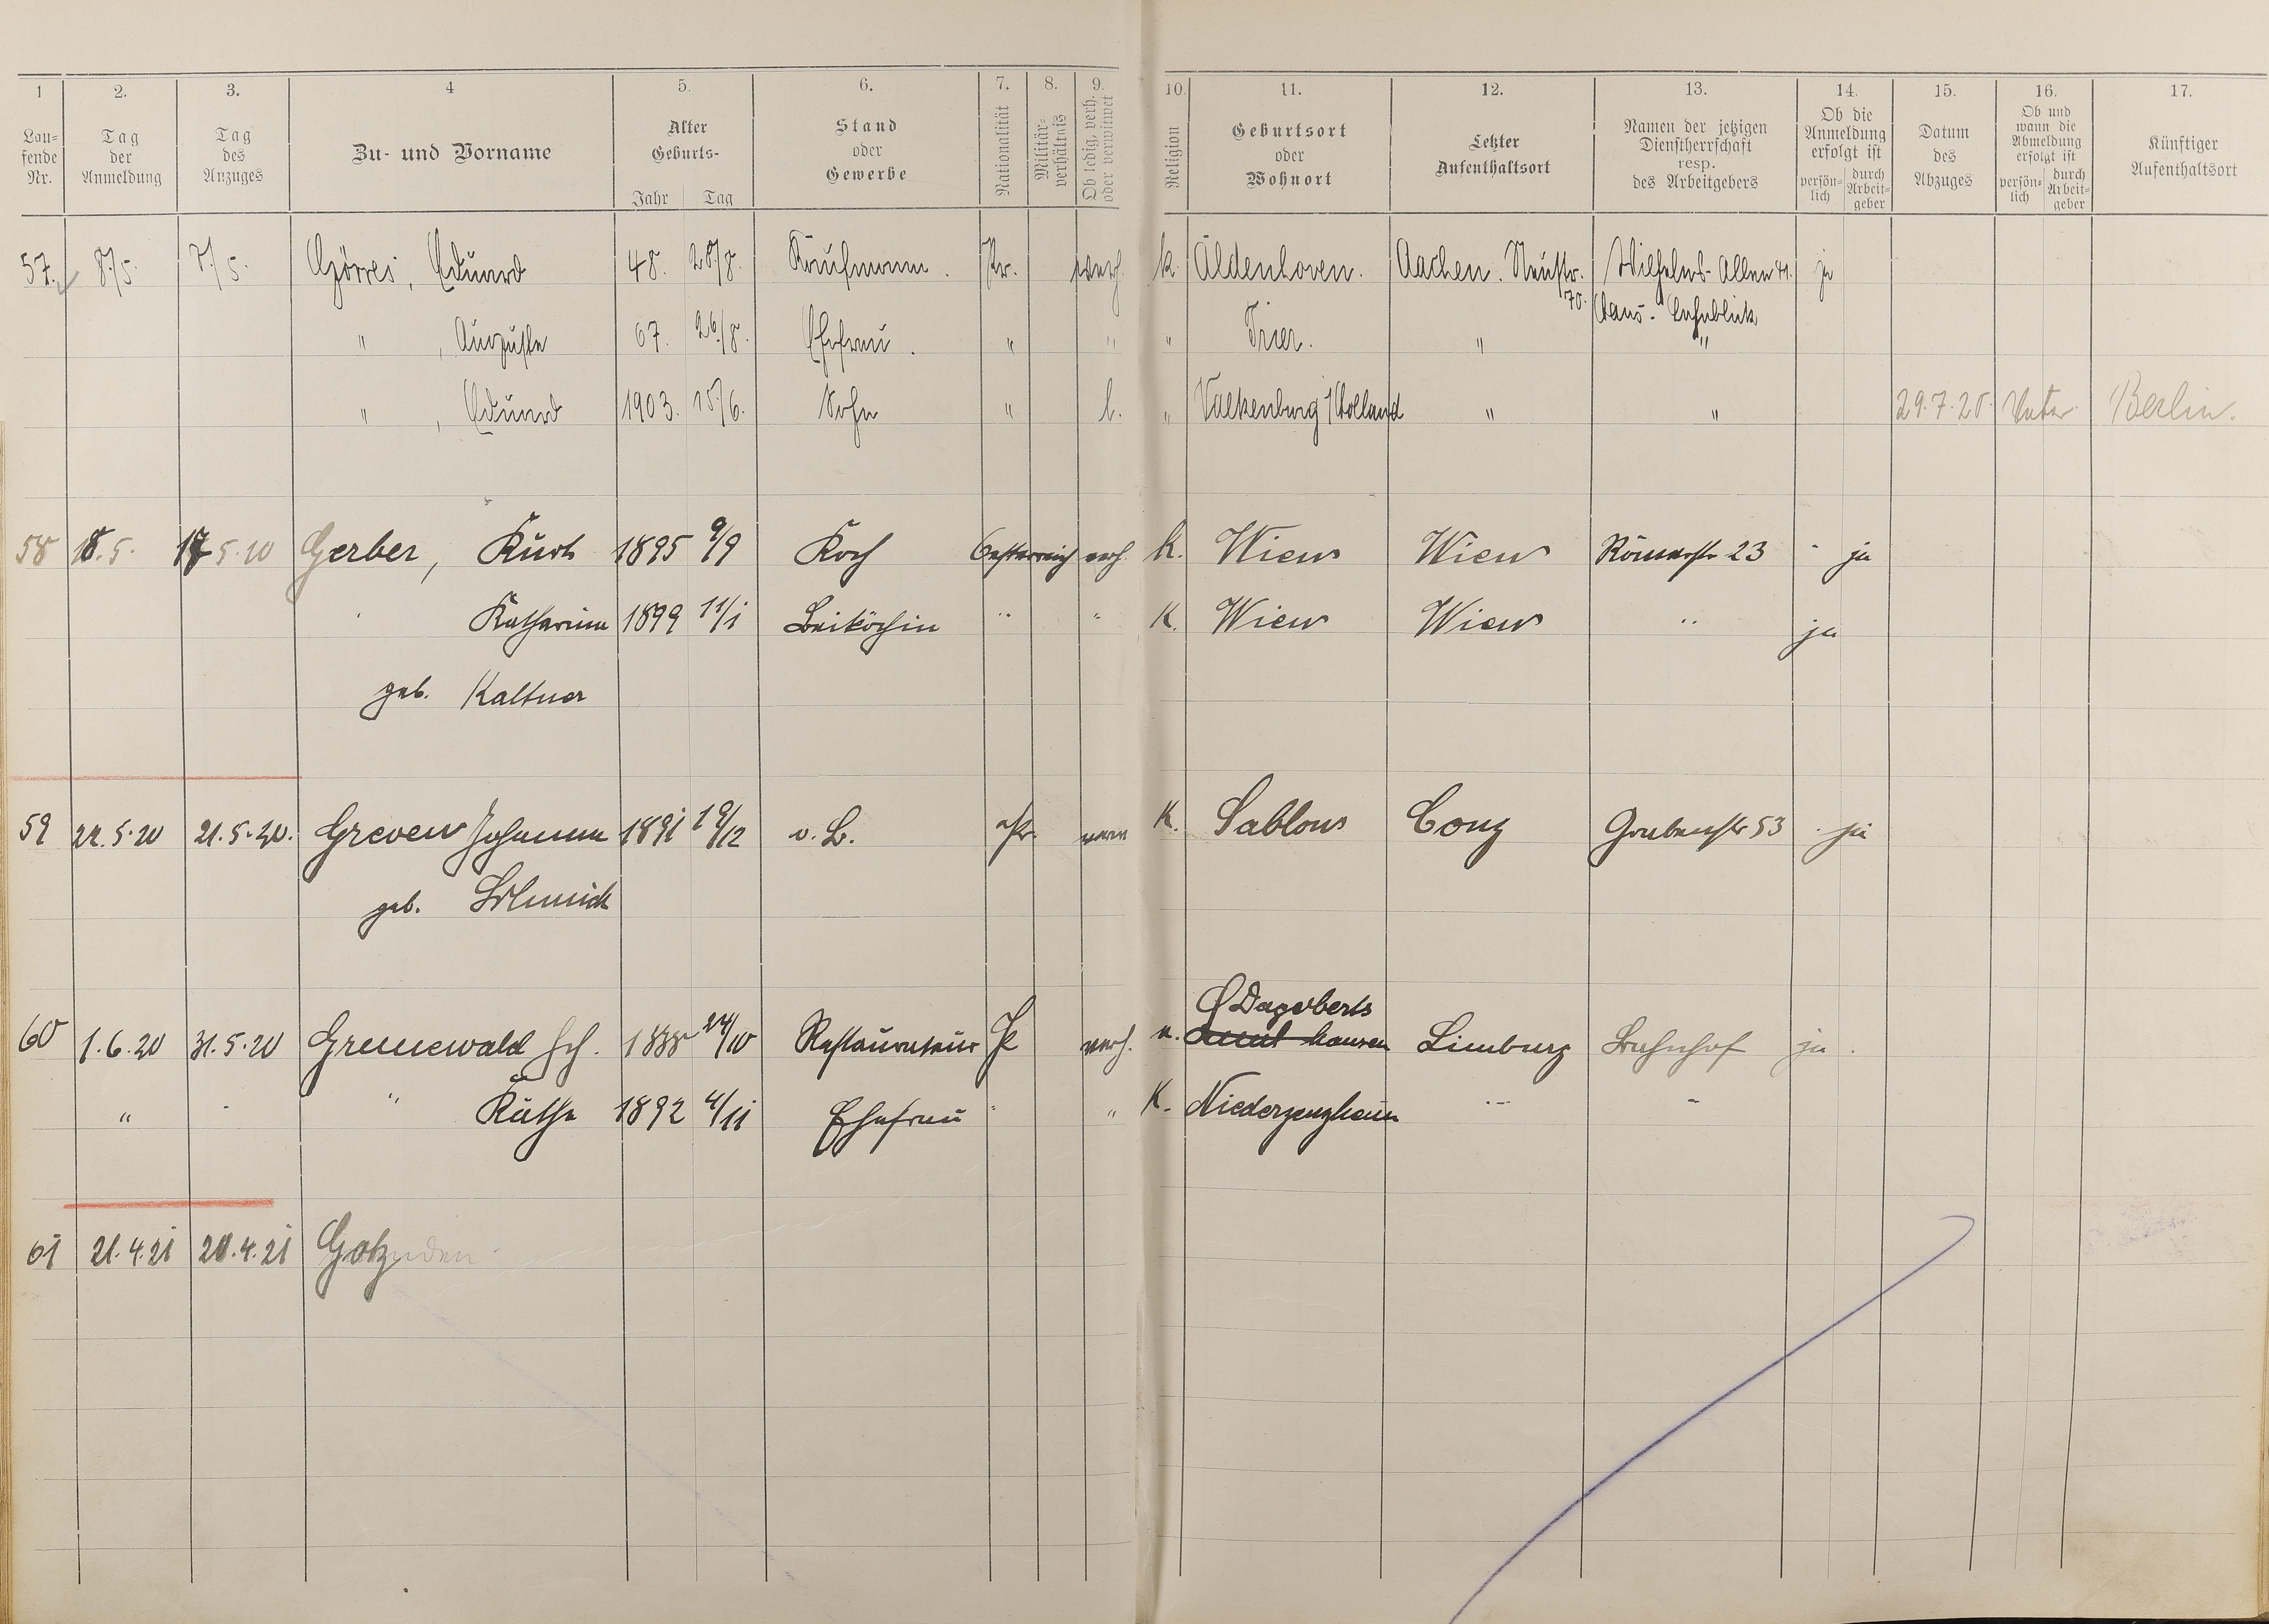 1 2. 3. 4 5. 6. 7. 8. 9. 10. 11. 12. 13. 14. 15. 16. 17.
Lau-
fende
Nr.
Tag
der
Anmeldung
Tag
des
Anzuges
Zu- und Vorname
Alter
Geburts-
Jahr Tag
Stand
oder
Gewerbe
Nationalität
Militär-
verhältnis
Ob ledig, verh.
oder verwitwet
Religion
Geburtsort
oder
Wohnort
Letzter
Aufenthaltsort
Namen der jetzigen
Dienstherrschaft
resp.
des Arbeitgebers
Ob die
Anmeldung
erfolgt ist
persön-
lich
durch
Arbeit-
geber
Datum
des
Abzuges
Ob und
wann die
Abmeldung
erfolgt ist
persön-
lich
durch
Arbeit-
geber
Künftiger
Aufenthaltsort
57. 8./5. 7./5. Görres, Eduard 48. 28/8. Kaufmann. Pr. verh. k. Aldenhoven. Aachen. Neustr. 70. Wilhelms-Allee 41. ja
Haus-
" , Auguste 67. 26./8. Ehefrau. " " " Trier. " "
" , Eduard 1903. 15/6. Sohn " l. " Valkenburg /Holland " " 29.7.20. Vater Berlin.
58 18.5. 17 5.20 Gerber, Kurt 1895 9/9 Koch Oesterreich verh. k. Wien Wien Römerstr 23 " ja
Katharina 1899 11/1 Beiköchin " " K. Wien Wien " ja
geb. Kaltner
59 22.5.20 21.5.20. Greven Johanna 1891 19/12 o. B. Pr. K. Sablons Conz Grabenstr 53 ja
geb. Schmick
60 1.6.20 31.5.20 Grunewald Hch. 1888 24/10 Restaurateur Pr verh. Dagoberts
hausen Limburg Bahnhof ja.
" " " Käthe 1892 4/11 Ehefrau " " K. Niederzeuzheim " "
61 21.4.21 20.4.21